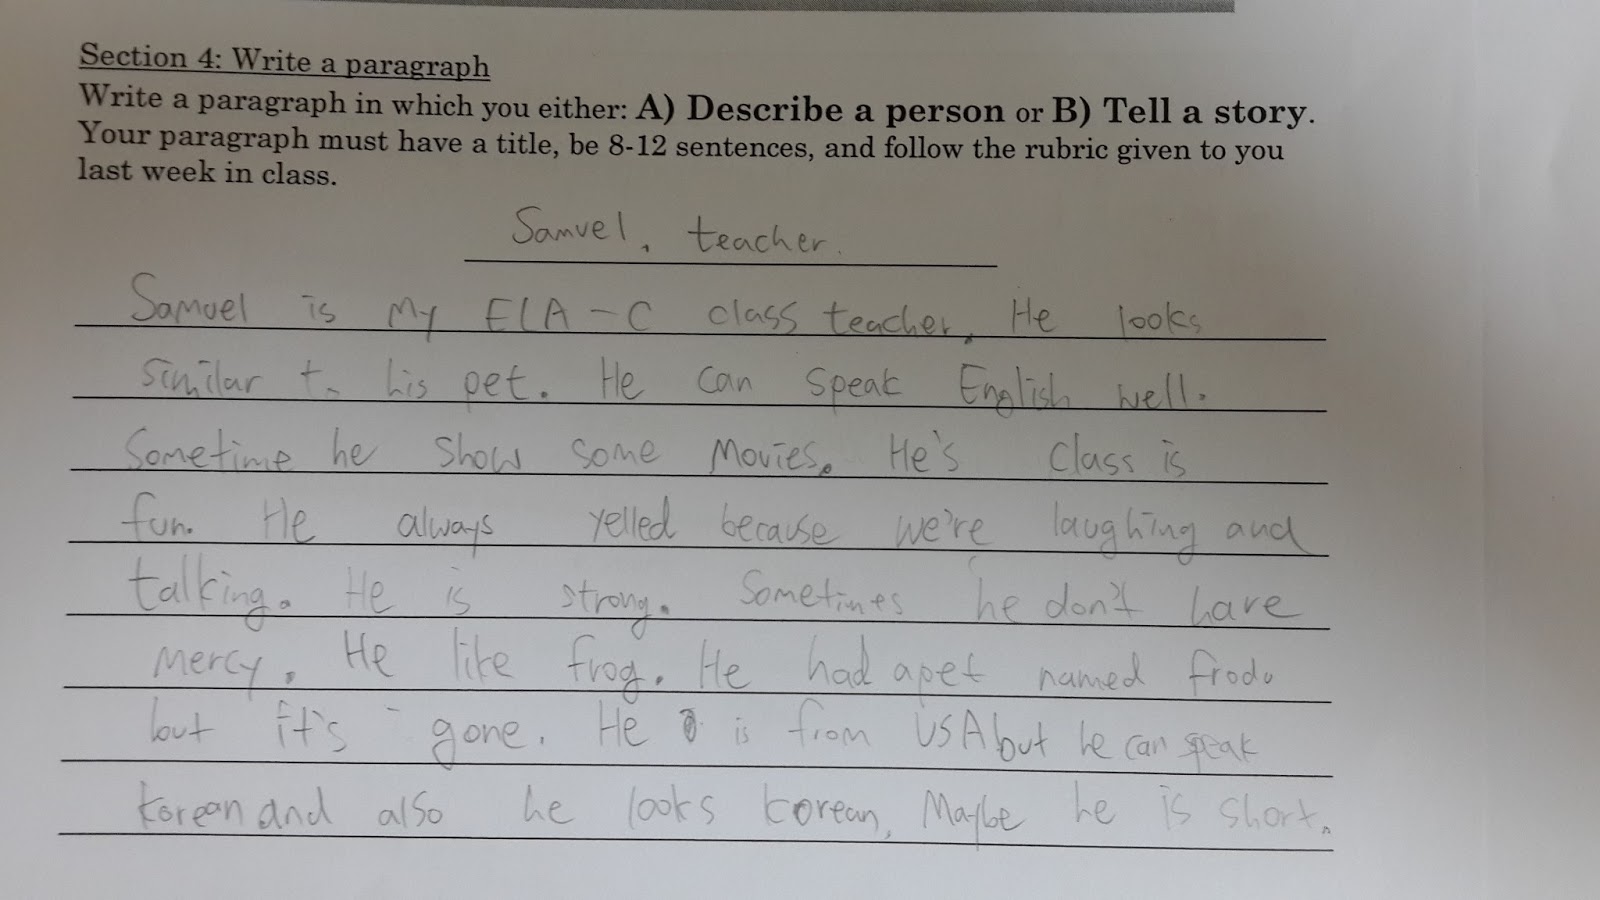 Section 4: Write a paragraph
Write a paragraph in which you either: A) Describe a person or B) Tell a story.
Your paragraph must have a title, be 8-12 sentences, and follow the rubric given to you
last week in class.
Samuel, teacher.
Samuel is my ELA-C class teacher. He looks
similar to his pet. He can speak English well.
Sometime he show some movies. He's class is
fun. He always yelled because we're laughing and
talking. He is strong. Sometimes he don't have
mercy. He like frog. He had a pet named frodo
but it's gone. He is from USA but he can speak
korean and also he looks korean, Maybe he is short.